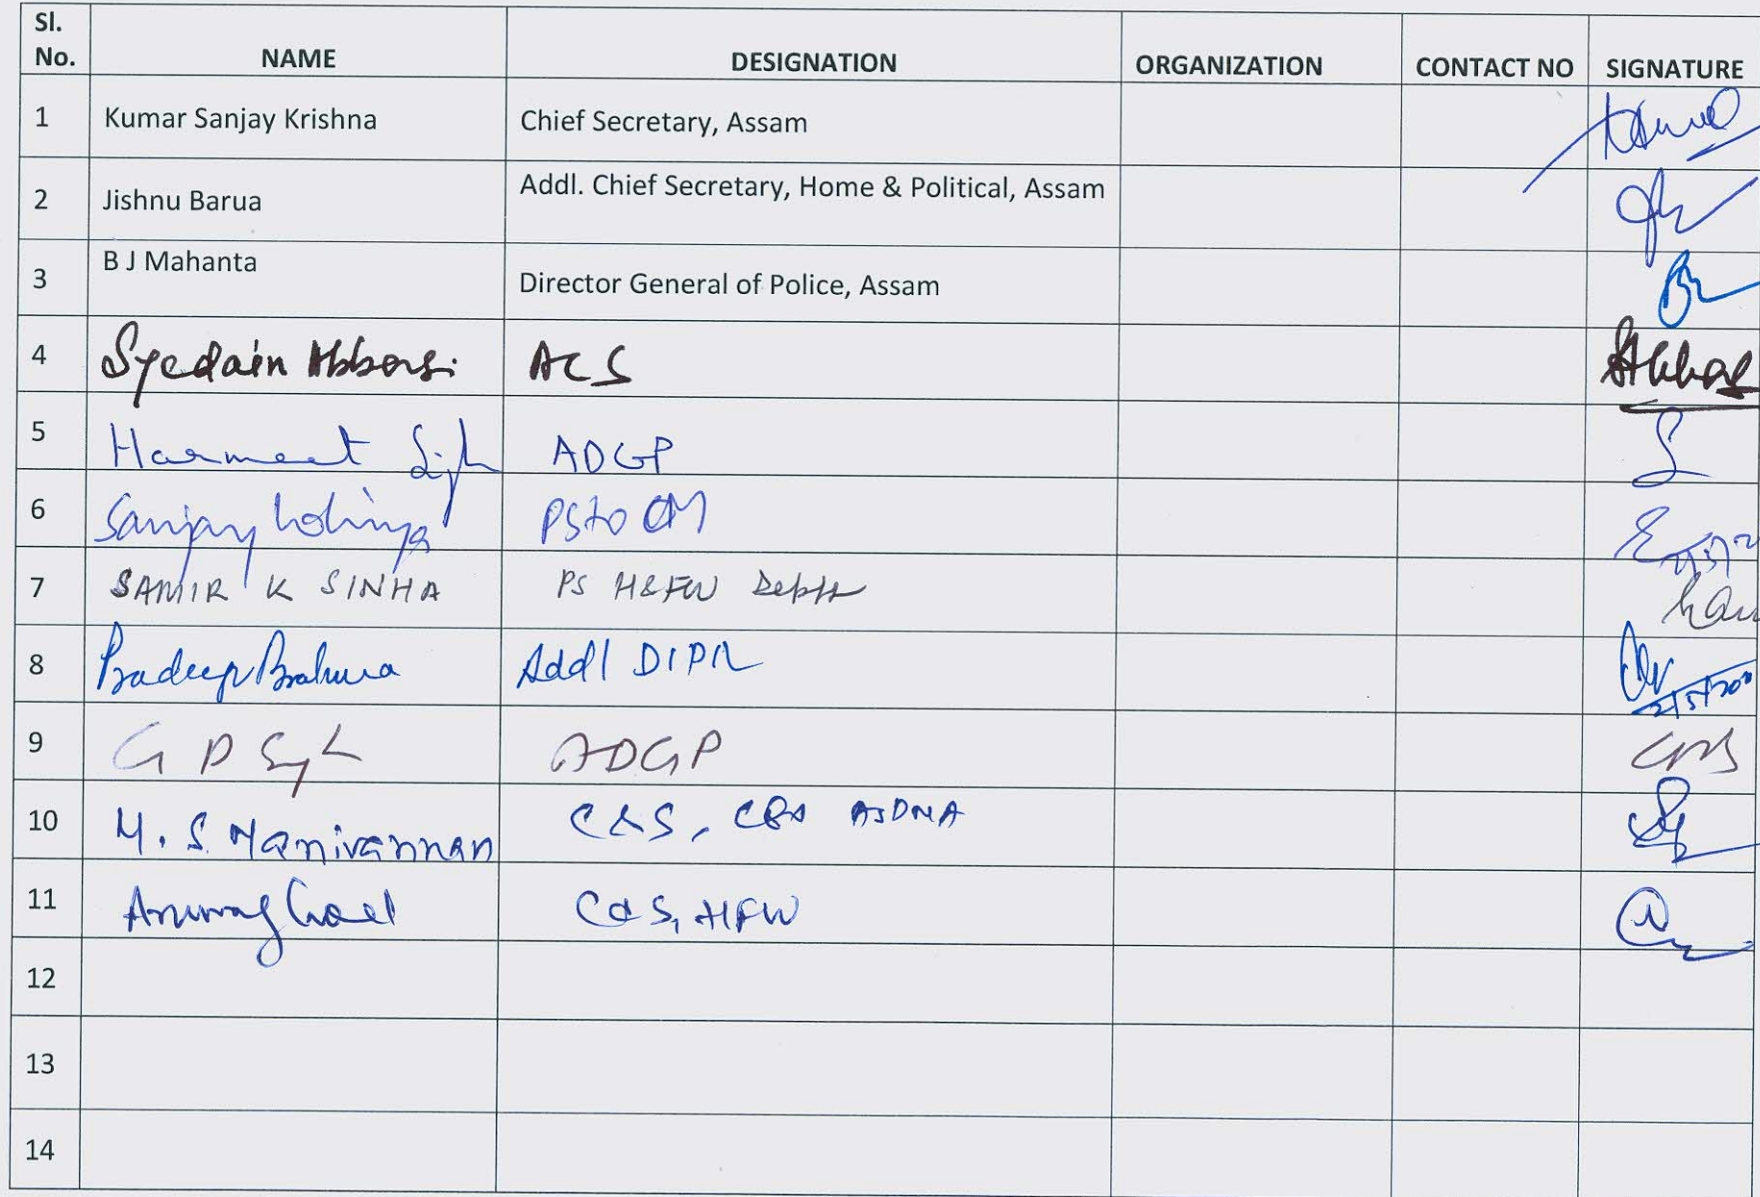 Sl. No. NAME DESIGNATION ORGANIZATION CONTACT NO SIGNATURE
1 Kumar Sanjay Krishna Chief Secretary, Assam
2 Jishnu Barua Addl. Chief Secretary, Home & Political, Assam
3 B J Mahanta Director General of Police, Assam
4 Syedain Abbasi ACS
5 Harmeet Singh ADGP
6 Sanjay Lohiya PS to CM
7 SAMIR K SINHA PS H&FW Deptt
8 Pradeep Brahma Addl DIPR
9 G P Singh ADGP
10 M. S. Manivannan C&S, ASDMA
11 Anurag Goel C&S, HFW
12
13
14